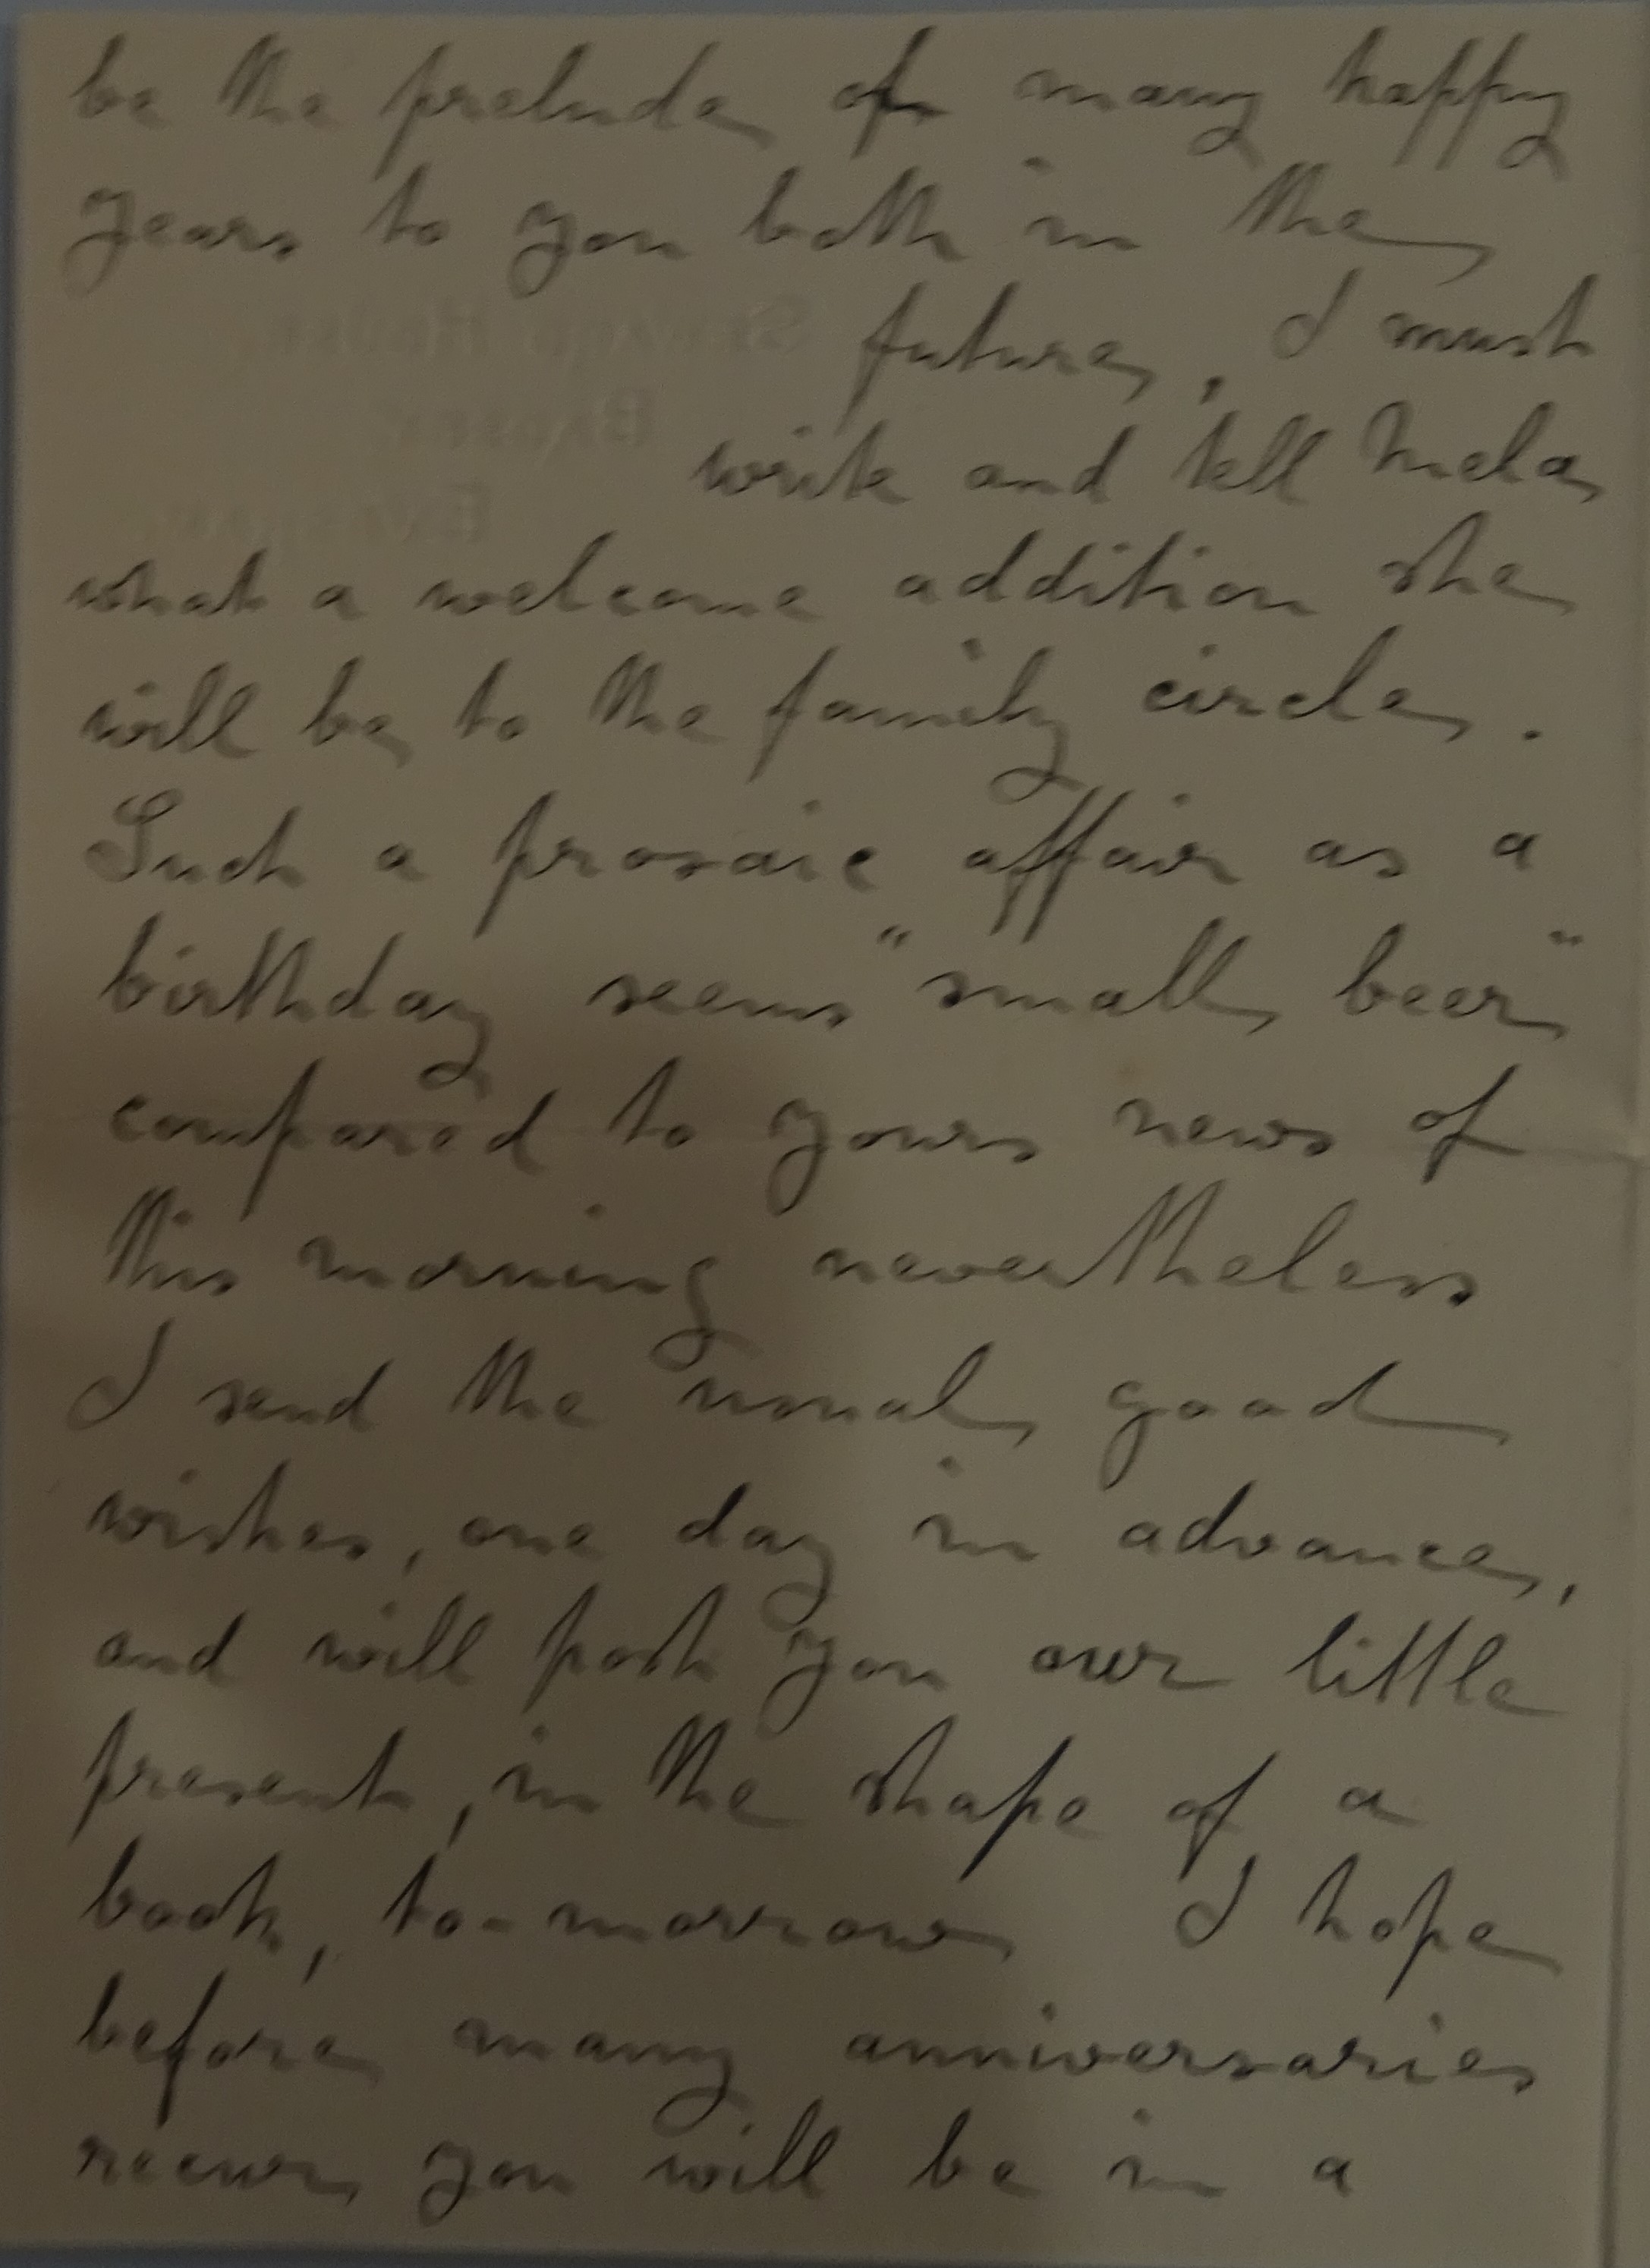 be the prelude of many happy
years to you both in the
future, I must
write and tell Mela
what a welcome addition she
will be to the family circle.
Such a prosaic affair as a
birthday seems "small beer"
compared to yours news of
this morning nevertheless
I send the usual good
wishes, one day in advance,
and will post you our little
present, in the shape of a
book, to-morrow I hope
before many anniversaries
recur you will be in a